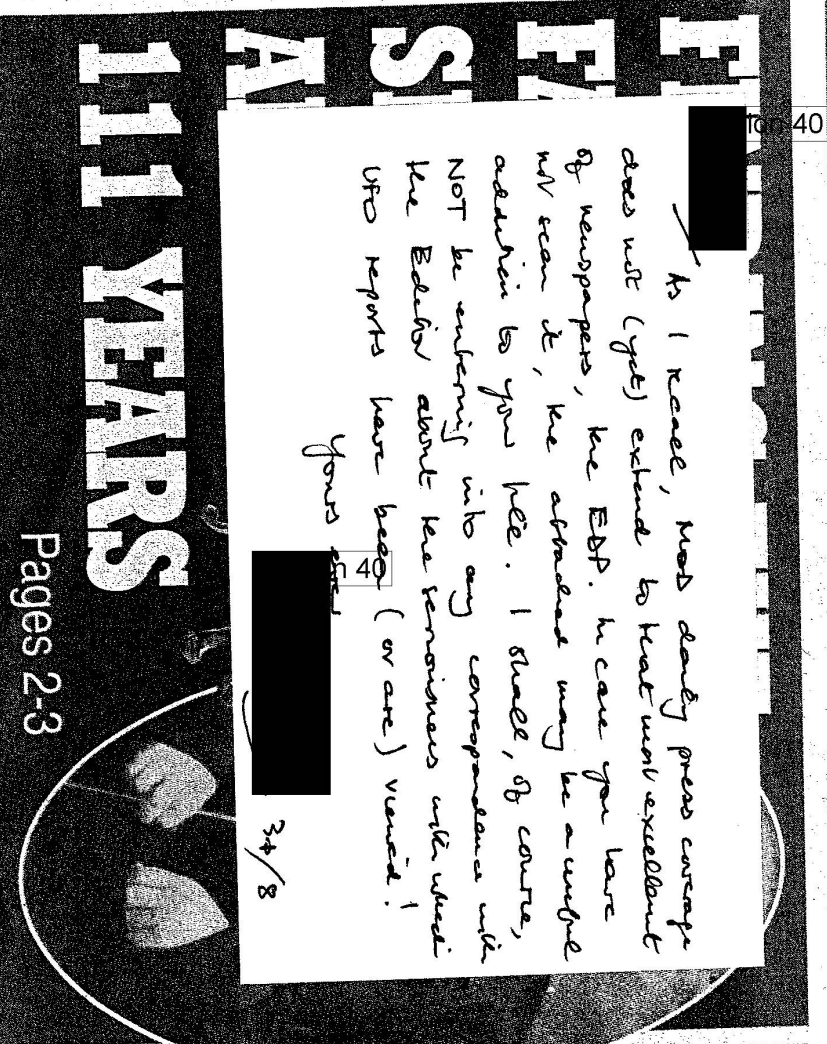 F
FA
S
A
111 YEARS
Pages 2-3
ion 40
As I recall, MOD daily press coverage
does not (yet) extend to that most excellent
of newspapers, the EDP. In case you have
not seen it, the attached may be a useful
addition to your file. I shall, of course,
NOT be entering into any correspondence with
the Editor about the seriousness with which
UFO reports have been (or are) viewed!
Yours
n 40